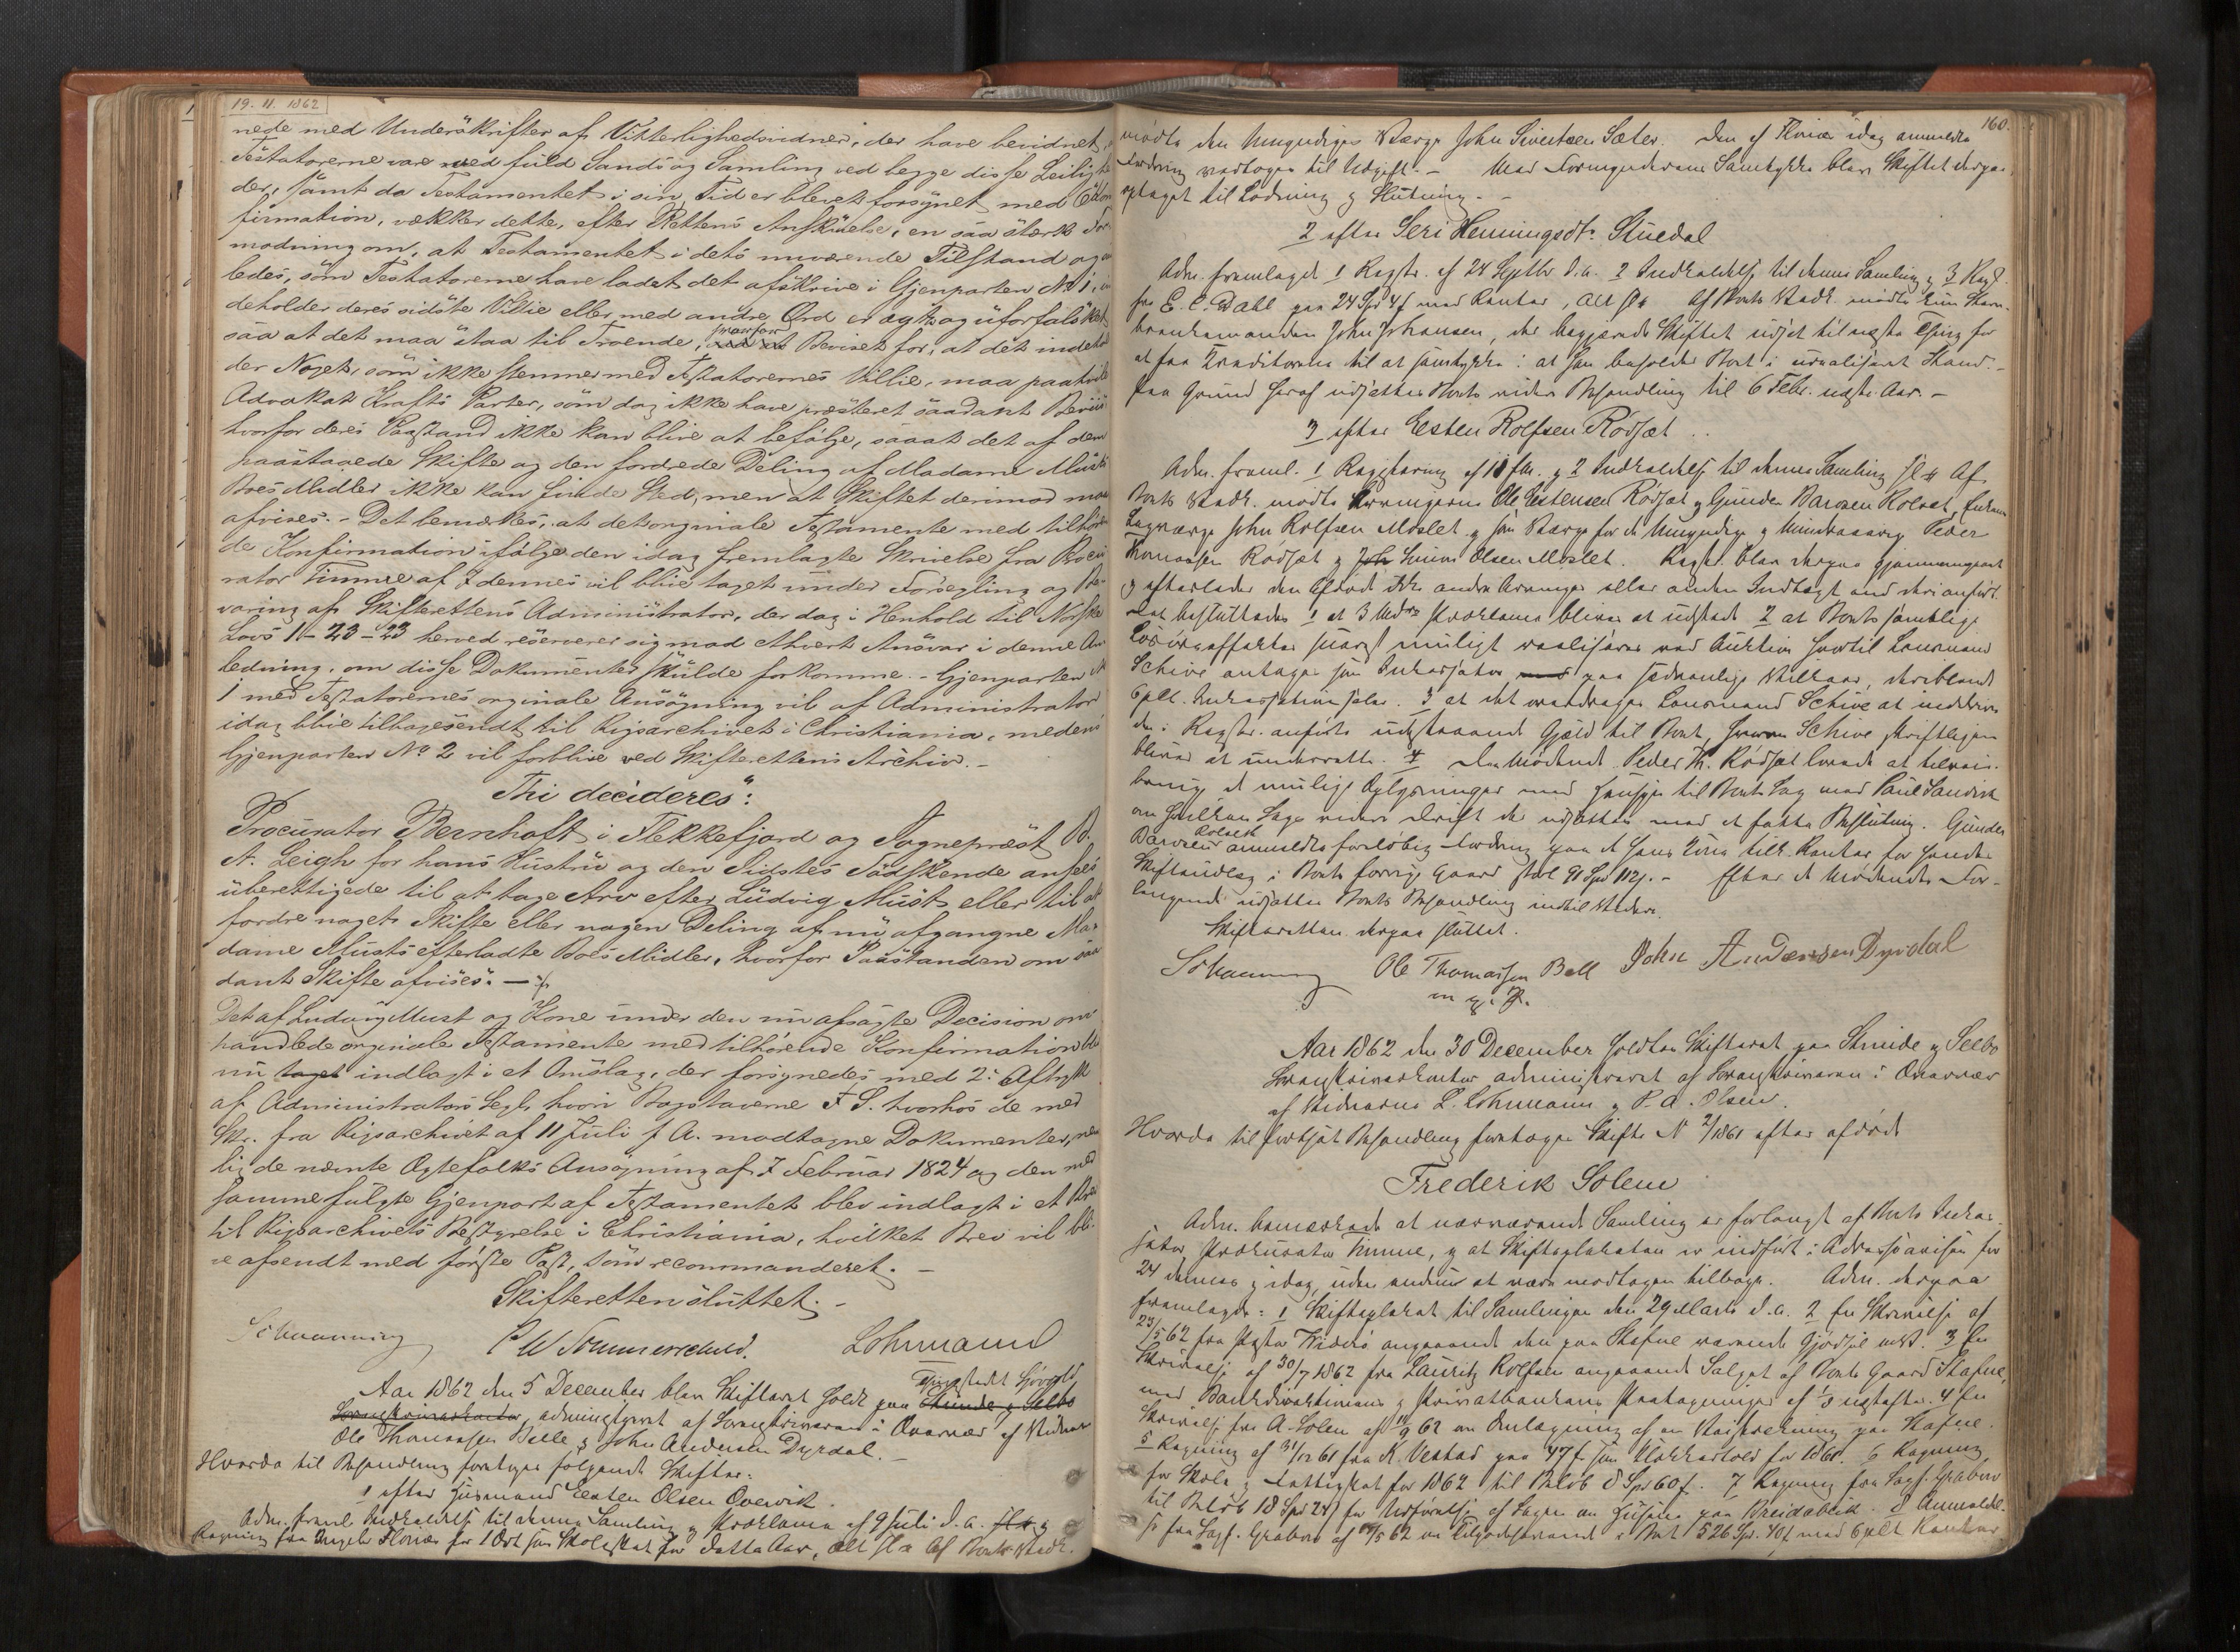 19. 11. 1862
nede med Underskrifter af Vitterlighedsvidner, der have bevidnet,
Testatorerne vare ved fuld Sands og Samling ved begge disse Leilighe
der, samt da Testamentet i sin Tid er blevet forsynet med
firmation, vækker dette, efter Rettens Anskuelse, en saa stærk For
modning om, at Testamentet i dets nuværende Tilstand og
ledes, som Testatorerne have ladet det afskrive i Gjenparten No 1, in
deholder deres sidste Villie eller med andre Ord er ægte og uforfalsket
saa at det maa staa til Troende, hvorfor Beviset for, at det indehol
der Noget, som ikke stemmer med Testatorernes Villie, maa paahvile
Advokat Krafts Parter, som dog ikke have præsteret saadant Beviis
hvorfor deres Paastand ikke kan blive at befølge, saa at det af dem
paastaaede Skifte og den fordrede Deling af Madame Müsts
Boes Midler ikke kan finde Sted, men at Skiftet derimod maa
afvises. - Det bemærkes, at det orginale Testamente med tilhøren
de Konfirmation ifølge den idag fremlagte Skrivelse fra Procu
rator Timme af 7 dennes vil blive taget under Forsegling og Be-
varing af Skifterettens Administrator, der dog i Henhold til Norske
Lovs 1-23-23 herved reserverer sig mod ethvert Ansvar i denne An
ledning, om disse Dokumenter skulde forkomme. - Gjenparten No
1 med Testatorernes orginale Ansøgning vil af Administrator
idag blive tilbagesendt til Rigsarchivet i Christiania, medens
Gjenparten No 2 vil forblive ved Skifterettens Archiv. -
Thi decideres":
Procurator Bernhoft i Flekkefjord og Sognepræst B.
A. Leigh for hans Hustru og den Sidstes Sødskende ansees
uberettigede til at tage Arv efter Ludvig Müst eller til at
fordre noget Skifte eller nogen Deling af nu afgangne Ma-
dame Müsts efterladte Boes Midler, hvorfor Paastanden om saa
dant Skifte afvises. -
Det af Ludvig Must og Kone under den nu afsagte Decision om
handlede orginale Testamente med tilhørende Konfirmation blev
nu taget indlagt i et Omslag, der forsynedes med 2 Aftryk
af Administrators Segl, hvori Bogstaverne F S. hvorhos de med
Skr. fra Rigsarchivet af 11 Juli f. A. modtagne Dokumenter, nem
lig de nævnte Ægtefolks Ansøgning af 7 Februar 1824 og den med
samme fulgte Gjenpart af Testamentet blev indlagt i et Brev
til Rigsarchivets Bestyrelse i Christiania, hvilket Brev vil bli-
ve afsendt med første Post, som recommanderet. -
Skifteretten sluttet. -
Lohmann
Aar 1862 den 5 December blev Skifteret holdt paa Thingstedet Strinde & Selbo
Sorenskriverkontor, administreret af Sorenskriveren i Overvær af Vidner
Ole Thomassen Belle & John Andersen Dyrdal. -
Hvorda til Behandling foretoges følgende Skifter:
1 efter Huusmand Eesten Olsen Overvik.
Adm. freml. Indkaldelse til denne Samling & Proklama af 9 Juli d.a.
Regning fra Flornæs for 1 Ort som Skoleskat for dette Aar, alt
160.
mødte den Umyndiges Værge John Sivertsen Sæter. Den af Flornæs idag anmeldte
Fordring vedtoges til Udgift. - Med Formynderens Samtykke blev Skiftet derpaa
optaget til Lodning & Slutning. -
2 efter Seri Henningsdtr. Stuedal
Adm. fremlagde 1 Regstr. af 24 Septbr d.a. 2 Indkaldelse til denne Samling & 3 Regn.
fra E. C. Dahl paa 24 Spd 4 f med Renter, Af Boets Vedk. mødte kun
John Johansen, der begjærede Skiftet udsat til næste Thing for
at faa Kreditorerne til at samtykke i at han beholder Boet i urealiseret Stand. -
Paa Grund heraf udsættes Boets videre Behandling til 6 Febr. næste Aar. -
3 efter Eesten Rolfsen Rødsæt
Adm. freml. 1 Registrering af f.M. & 2 Indkaldelse til denne Samling Af
Boets Vedk. mødte Arvingerne Ole Estensen Rødsæt & Gunder Baroen Rolset, Enkens
Laugværge John Rolfsen Moslet & som Værge for de Umyndige & Mindreaarig Peder
Thomassen Rødsæt & Simon Olsen Moslet. Regstr. blev derpaa gjennemgaaet
& efterlader den Afdøde ikke andre Arvinger eller anden Indtægt end deri anført.
Det besluttedes 1 at 3 Mdrs Proklama bliver at udstede 2 at Boets samtlige
Løsøreeffekter snarest muligt realiseres ved Auktion hvortil Lensmand
Schive antages som Inkassator paa sædvanlige Vilkaar, deriblandt
6 pCt. Inkassationssalær. 3 at det overdrages Lensmand Schive at inddrive
den i Regstr. anførte udestaaende Gjæld til Boet, hvorom Schive skriftligen
bliver at underrette. 4 Den Mødende Peder Th. Rødsæt lovede at tilveie-
bringe de mulige Oplysninger med Hensyn til Boets Sag mod Paul Sandvik
om hvilken Sags videre Drift der udsættes med at fatte Beslutning. Gunder
Baroen Rolset anmeldte foreløbig Fordring paa et hans Kone tilk. Renter for hendes
Skifteudlæg i Boets forrige Gaard stort 91 Spd 112 f. - Efter de Mødendes For-
langende udsættes Boets Behandling indtil videre.
Skifteretten derpaa sluttet.
Ole Thomassen Bell John Andersen Dyrdal
m. p. P.
Aar 1862 den 30 December holdtes Skifteret paa Strinde & Selbo
Sorenskriverkontor administreret af Sorenskriveren i Overvær
af Vidnerne L. Lohmann & P. A. Olsen.
Hvorda til fortsat Behandling foretoges Skifte No 2/1861 efter afdøde
Frederik Solem
Adm. bemærkede at nærværende Samling er forlangt af Boets Inkas-
sator, Prokurator Timme, & at Skifteplakaten er indført i Adresseavisen for
24 dennes & idag, uden endnu at være modtagen tilbage. Adm. derpaa
fremlagde: 1 Skifteplakat til Samlingen den 29 Marts d.a. 2 En Skrivelse af
23/5 62 fra angaaende den paa Stafne værende Gjødsel m.v. 3 En
Skrivelse af 30/7 1862 fra Lauritz Rolfsen angaaende Salget af Boets Gaard Stafne,
med Bankdirektionens & Privatbankens Paategninger af næstefter. 4 En
Skrivelse fra A. Solem af 62 om Omlægning af en Veistrækning paa Stafne.
5 Regning af 31/12 61 fra K. Vestad paa 47 f. som Klokkertold for 1860. 6 Regning
for Skole & Fattigskat for 1862 til Beløb 8 Spd 60 f. 7 Regning fra Sagf. Grabow
til Beløb 18 Spd 24 f for Udførelse af Sagen om Husene paa Breidablik. 8 Anmeldel-
se fra Sagf. Grabow af 62 om Tilgodehavende i Boet 526 Spd. 40 f. med 6 pCt Renter